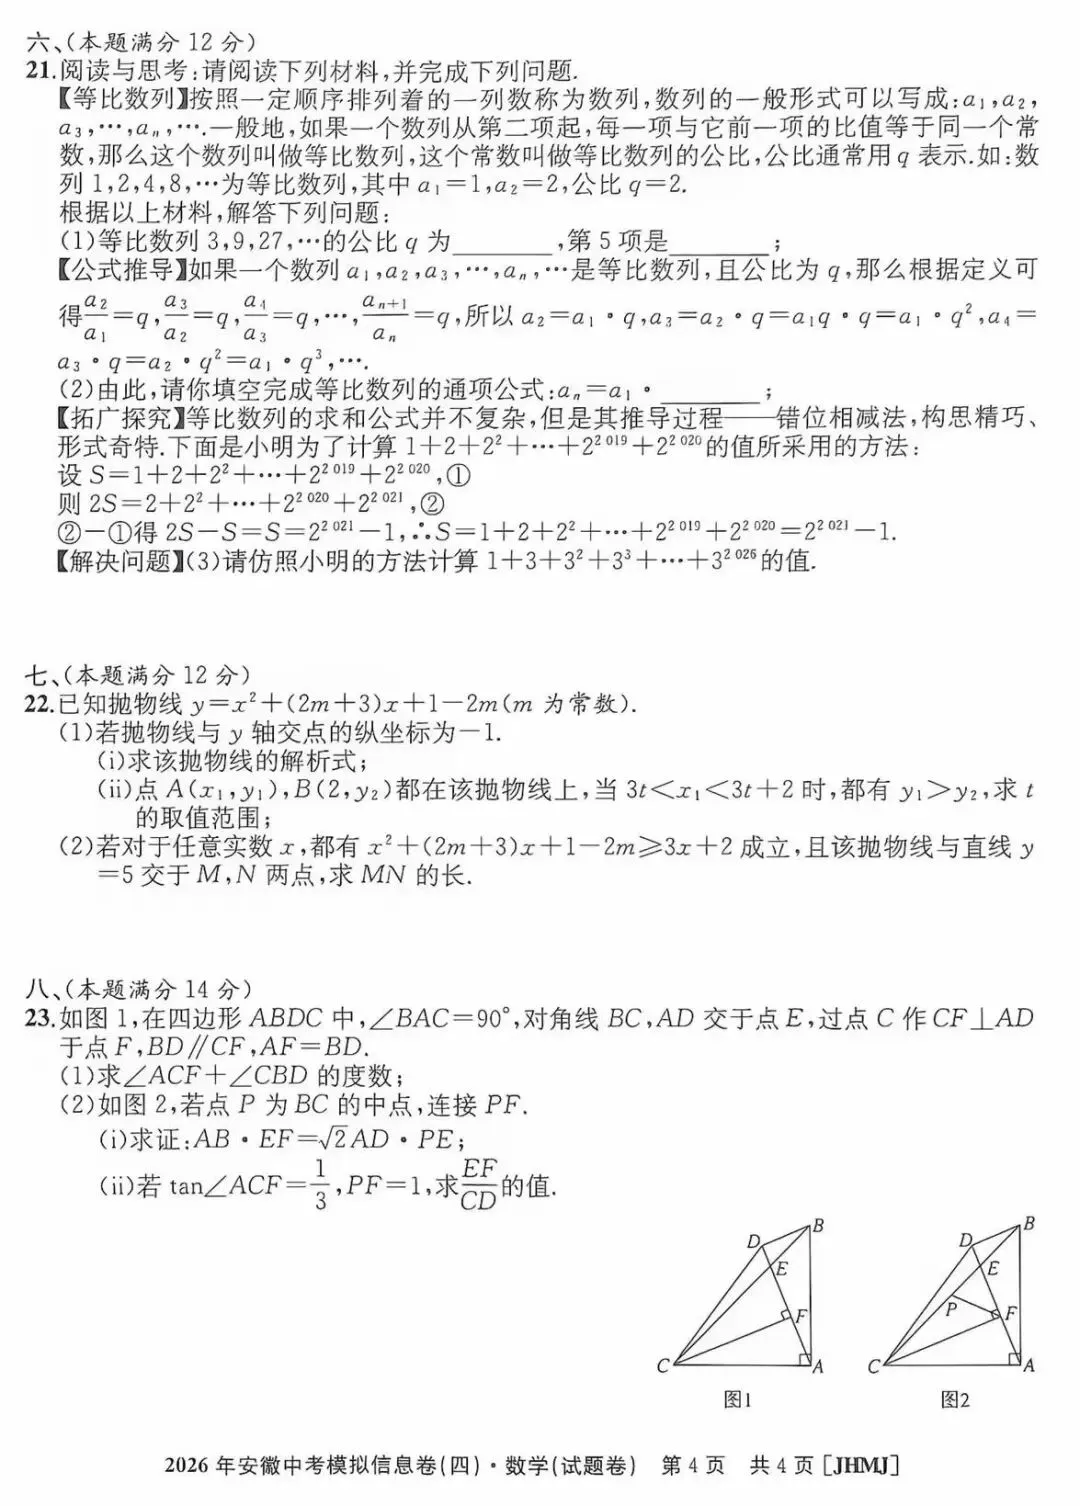 六、(本题满分 12 分)
21.阅读与思考:请阅读下列材料,并完成下列问题.
【等比数列】按照一定顺序排列着的一列数称为数列,数列的一般形式可以写成:a₁,a₂,
a₃,…,aₙ,….一般地,如果一个数列从第二项起,每一项与它前一项的比值等于同一个常
数,那么这个数列叫做等比数列,这个常数叫做等比数列的公比,公比通常用 q 表示.如:数
列 1,2,4,8,…为等比数列,其中 a₁=1,a₂=2,公比 q=2.
根据以上材料,解答下列问题:
(1)等比数列 3,9,27,…的公比 q 为________,第 5 项是________;
【公式推导】如果一个数列 a₁,a₂,a₃,…,aₙ,…是等比数列,且公比为 q,那么根据定义可
得a₂/a₁=q,a₃/a₂=q,a₄/a₃=q,…,aₙ₊₁/aₙ=q,所以 a₂=a₁·q,a₃=a₂·q=a₁q·q=a₁·q²,a₄=
a₃·q=a₂·q²=a₁·q³,….
(2)由此,请你填空完成等比数列的通项公式:aₙ=a₁·________;
【拓广探究】等比数列的求和公式并不复杂,但是其推导过程——错位相减法,构思精巧、
形式奇特.下面是小明为了计算 1+2+2²+…+2²⁰¹⁹+2²⁰²⁰的值所采用的方法:
设 S=1+2+2²+…+2²⁰¹⁹+2²⁰²⁰,①
则 2S=2+2²+…+2²⁰²⁰+2²⁰²¹,②
②-①得 2S-S=S=2²⁰²¹-1,∴S=1+2+2²+…+2²⁰¹⁹+2²⁰²⁰=2²⁰²¹-1.
【解决问题】(3)请仿照小明的方法计算 1+3+3²+3³+…+3²⁰²⁶的值.
七、(本题满分 12 分)
22.已知抛物线 y=x²+(2m+3)x+1-2m(m 为常数).
(1)若抛物线与 y 轴交点的纵坐标为-1.
(ⅰ)求该抛物线的解析式;
(ⅱ)点 A(x₁,y₁),B(2,y₂)都在该抛物线上,当 3t<x₁<3t+2 时,都有 y₁>y₂,求 t
的取值范围;
(2)若对于任意实数 x,都有 x²+(2m+3)x+1-2m≥3x+2 成立,且该抛物线与直线 y
=5 交于 M,N 两点,求 MN 的长.
八、(本题满分 14 分)
23.如图 1,在四边形 ABDC 中,∠BAC=90°,对角线 BC,AD 交于点 E,过点 C 作 CF⊥AD
于点 F,BD∥CF,AF=BD.
(1)求∠ACF+∠CBD 的度数;
(2)如图 2,若点 P 为 BC 的中点,连接 PF.
(ⅰ)求证:AB·EF=√2AD·PE;
(ⅱ)若 tan∠ACF=1/3,PF=1,求EF/CD的值.
B
D
E
F
C
A
图1
B
D
E
P
F
C
A
图2
2026 年安徽中考模拟信息卷(四)·数学(试题卷) 第 4 页 共 4 页[JHMJ]